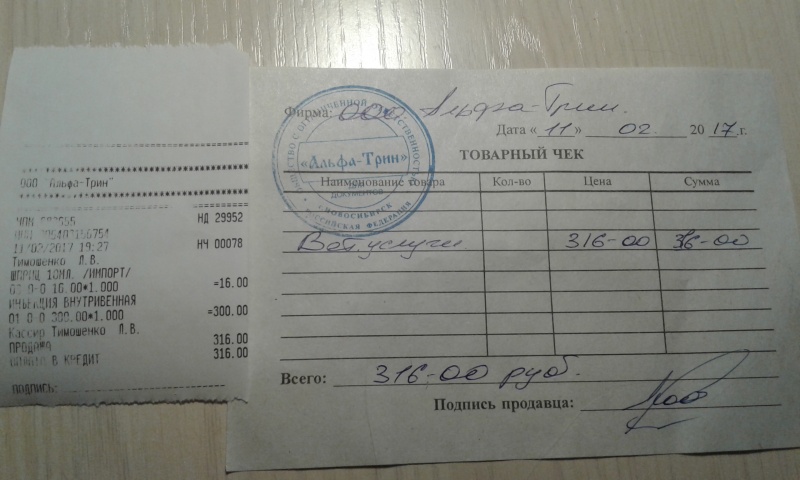 ООО "Альфа-Трин"
НД 29952
11/02/2017 19:27 НЧ 00078
Тимошенко Л.В.
ШПРИЦ 10МЛ. /ИМПОРТ/
01 0-0 16.00*1.000 =16.00
ИНЬЕКЦИЯ ВНУТРИВЕННАЯ
01 0-0 300.00*1.000 =300.00
Кассир Тимошенко Л.В.
ПРОДАЖА 316.00
ОПЛАТА В КРЕДИТ 316.00
ПОДПИСЬ:
Фирма: ООО Альфа-Трин.
Дата «11» 02. 2017 г.
ТОВАРНЫЙ ЧЕК
Наименование товара Кол-во Цена Сумма
Вет.услуги 316-00 316-00
Всего: 316-00 руб.
Подпись продавца:
ОБЩЕСТВО С ОГРАНИЧЕННОЙ ОТВЕТСТВЕННОСТЬЮ
«Альфа-Трин»
ДЛЯ ДОКУМЕНТОВ
г. НОВОСИБИРСК
РОССИЙСКАЯ ФЕДЕРАЦИЯ